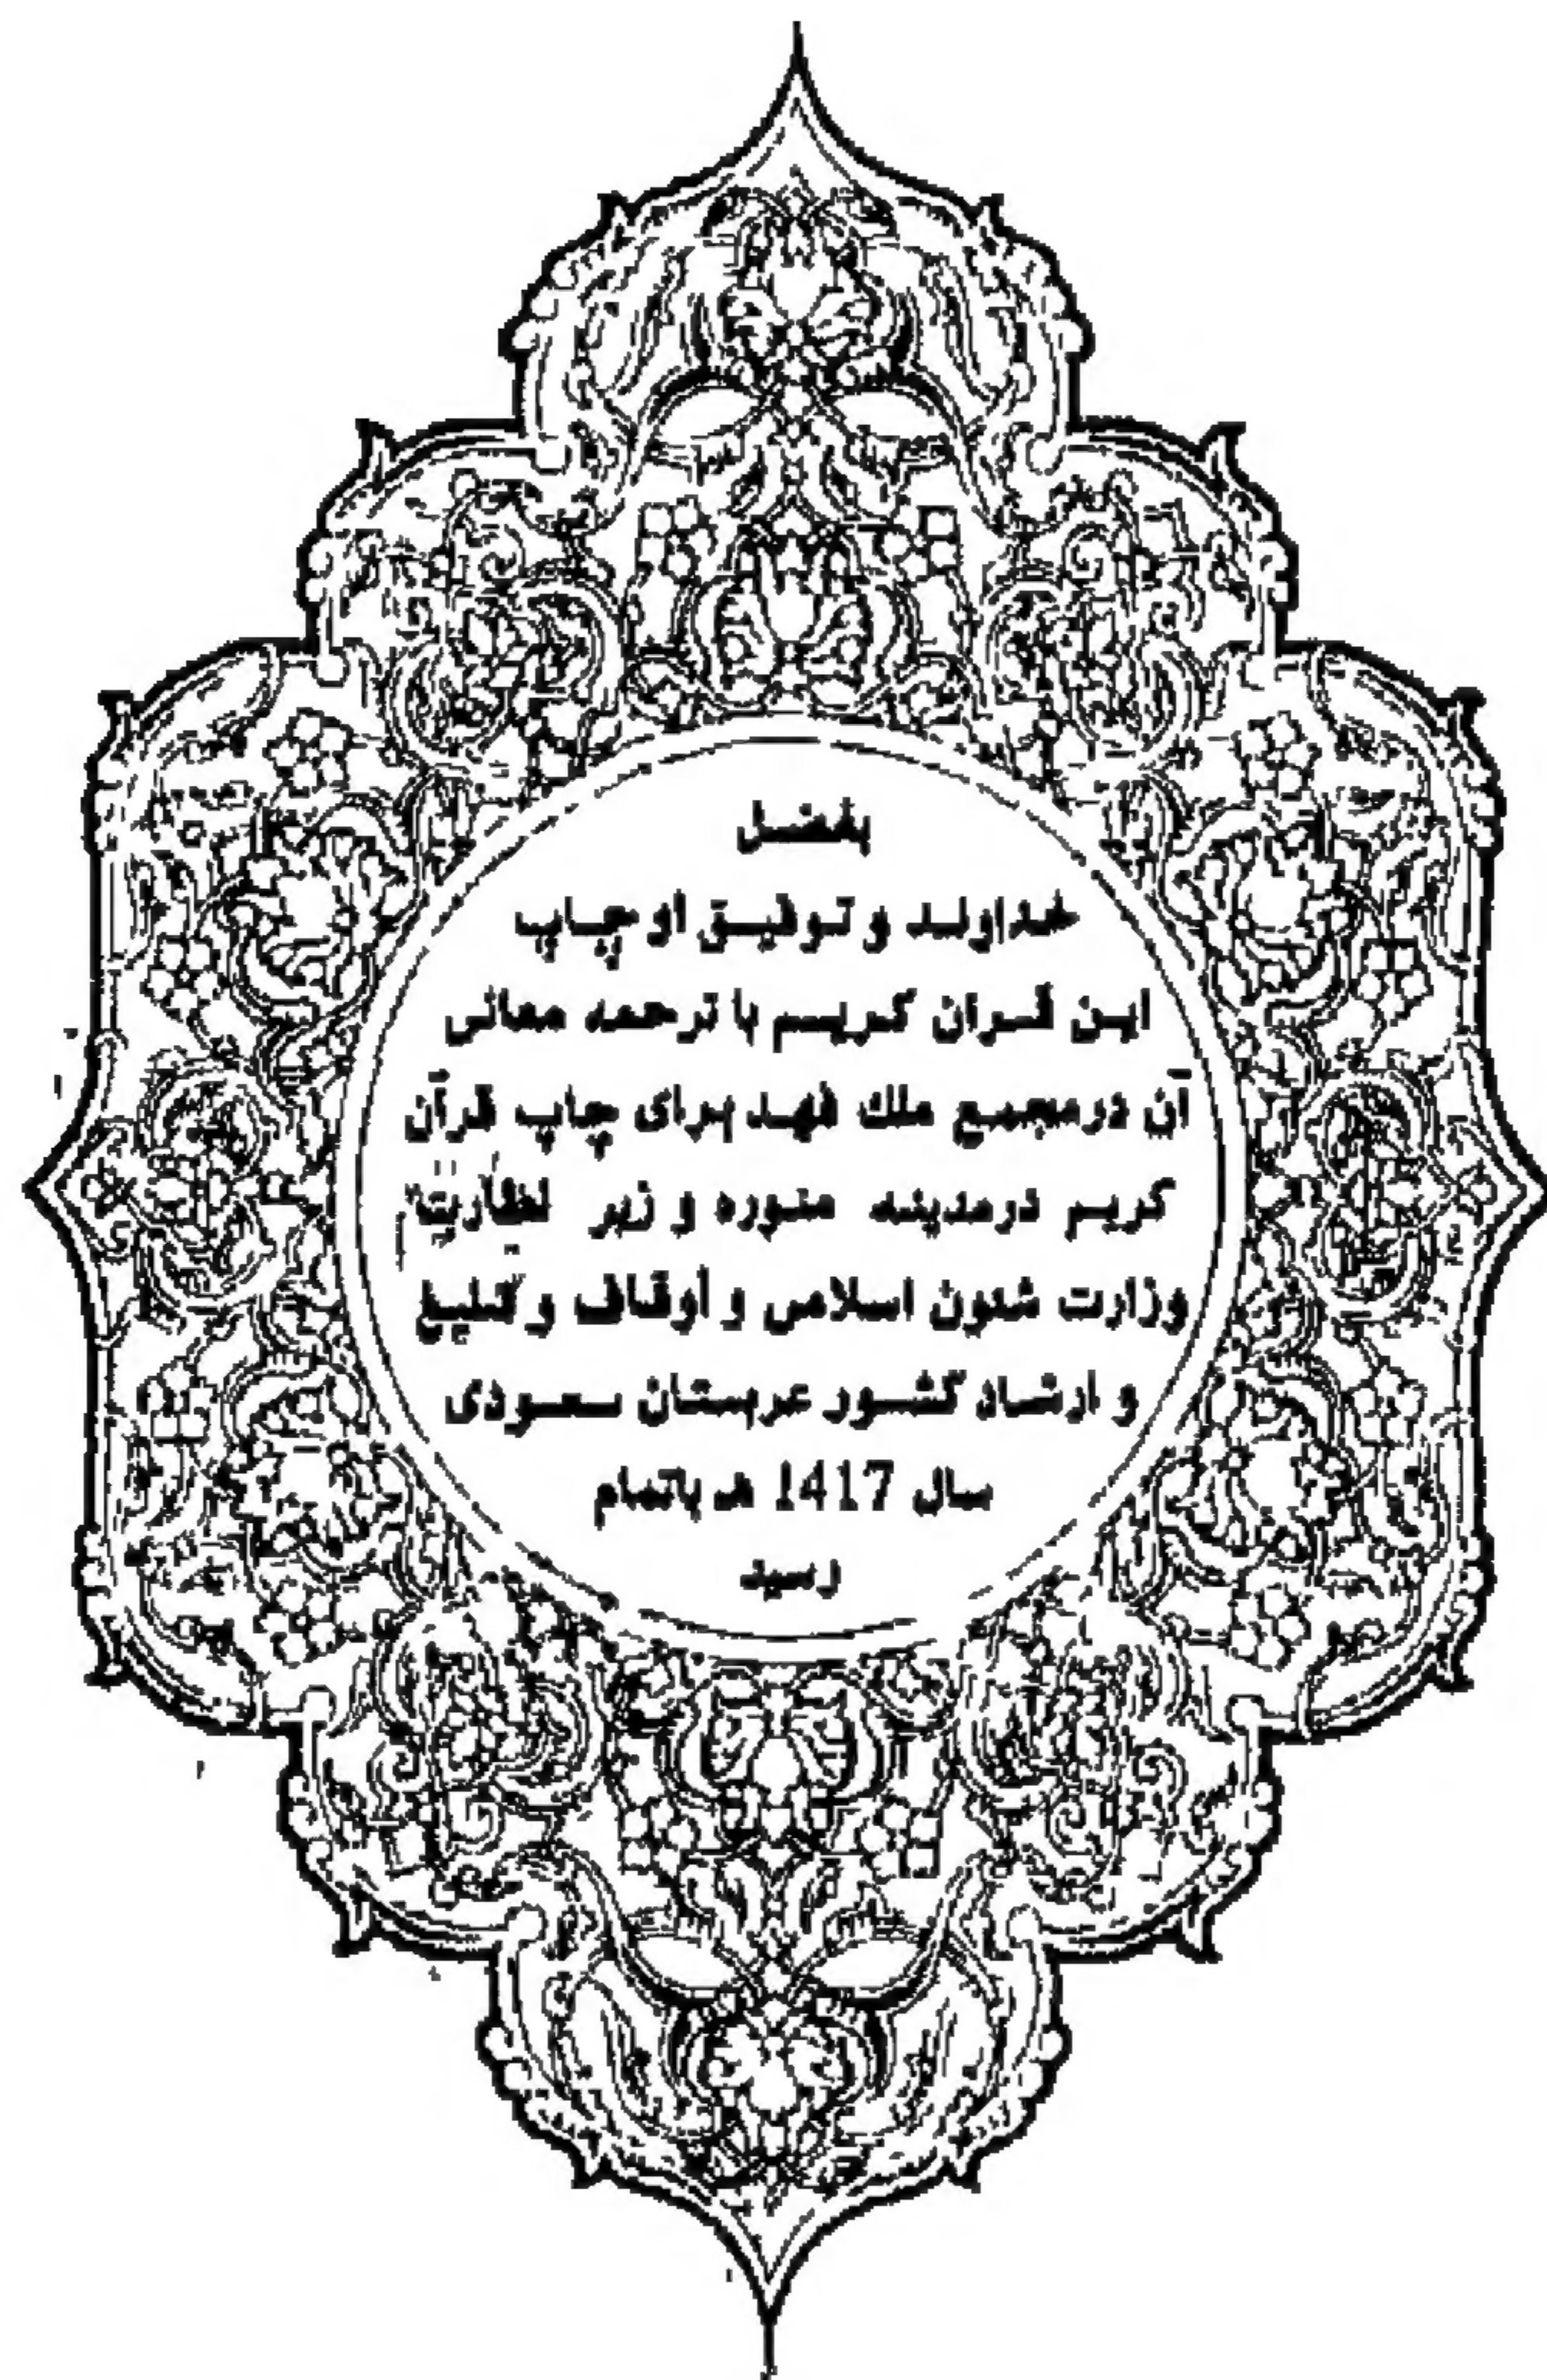 بفضل
خداوند و توفیق او چاپ
این قرآن کریم با ترجمه معانی
آن درمجمع ملك فهد برای چاپ قرآن
کریم درمدینه منوره و زیر نظارت
وزارت شئون اسلامی و أوقاف و تبلیغ
و ارشاد کشور عربستان سعودی
سال 1417 هـ باتمام
رسید